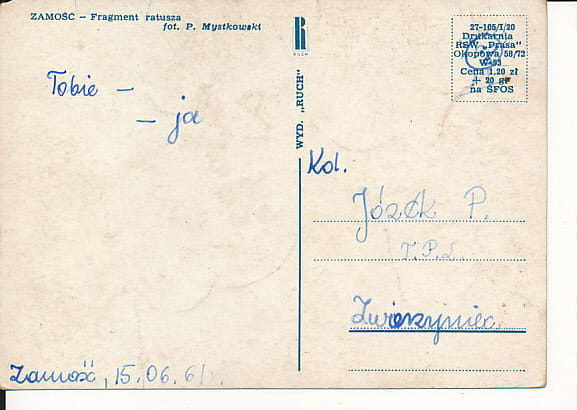 ZAMOŚĆ – Fragment ratusza
fot. P. Mystkowski
Tobie –
– ja
Zamość, 15.06.61
R
RUCH
WYD. „RUCH"
27-105/I/20
Drukarnia
RSW „Prasa"
Okopowa 58/72
W-93
Cena 1.20 zł
+ 20 gr
na SFOS
Kol.
Józek P.
T.P.L.
Zwierzyniec